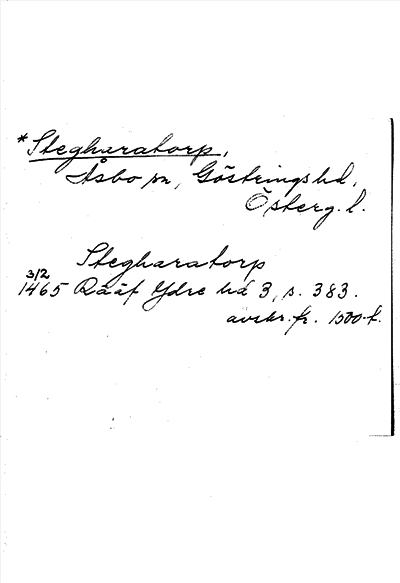 *Stegharatorp,
Åsbo sn, Göstrings hd,
Österg. l.
Stegharatorp
3/2
1465 Rääf Ydre hd 3, s. 383.
avskr. fr. 1500-t.